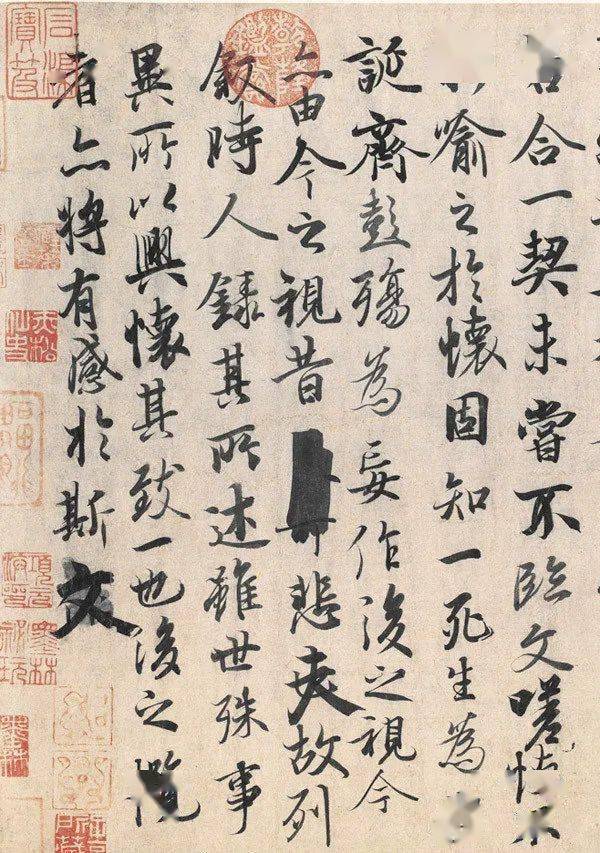 合一契未嘗不臨文嗟悼不
喻之於懷固知一死生為
誕齊彭殤為妄作後之視今
亦由今之視昔悲夫故列
敘時人錄其所述雖世殊事
異所以興懷其致一也後之攬
者亦將有感於斯文